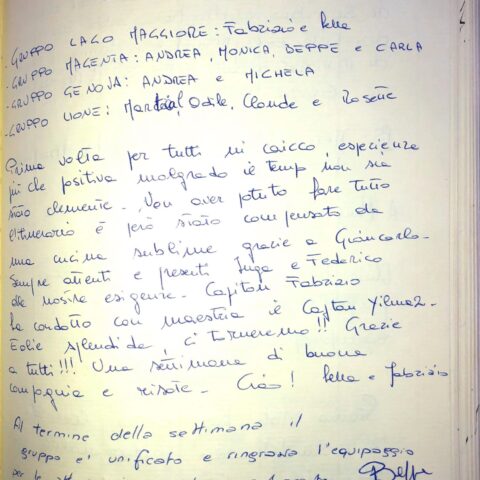 - GRUPPO LAGO MAGGIORE: Fabrizio e Lella
- GRUPPO MAGENTA: ANDREA, MONICA, BEPPE e CARLA
- GRUPPO GENOVA: ANDREA e MICHELA
- GRUPPO LIONE: Martial, Odile, Claude e Rosette
Prima volta per tutti in caicco, esperienza
più che positiva malgrado il tempo non sia
stato clemente. Non aver potuto fare tutto
l'itinerario è però stato compensato da
una cucina sublime grazie a Giancarlo.
Sempre attenti e presenti Inga e Federico
alle nostre esigenze. Capitan Fabrizio
ha condotto con maestria il Capitan Yilmaz.
Eolie splendide, ci torneremo!! Grazie
a tutti!!! Una settimana di buona
compagnia e risate. Ciao! Lella e Fabrizio
Al termine della settimana il
gruppo e' unificato e ringrazia l'equipaggio
per le
Beppe